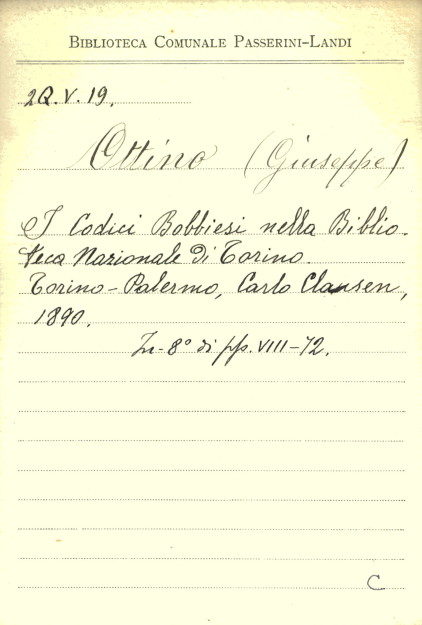 BIBLIOTECA COMUNALE PASSERINI-LANDI
2Q.V.19.
Ottino (Giuseppe)
I Codici Bobbiesi nella Biblio-
teca Nazionale di Torino.
Torino-Palermo, Carlo Clausen,
1890.
In-8° di pp. VIII-72.
C